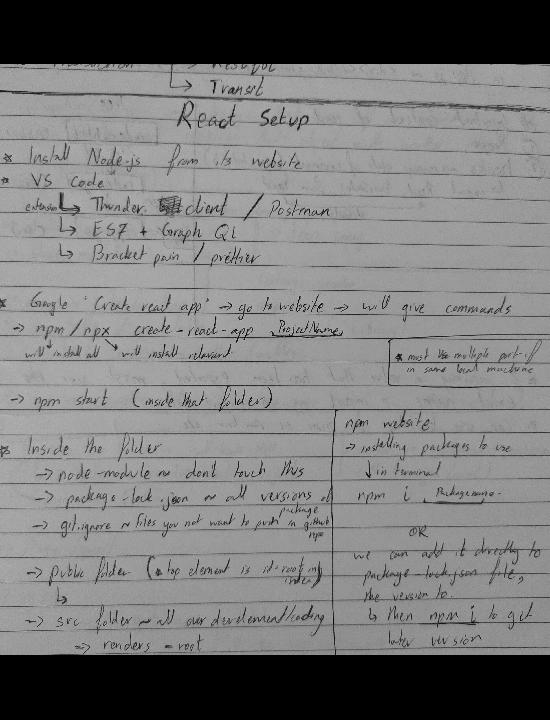 ↳ Transit
React Setup
* Install Node-js from its website
* VS Code
extension ↳ Thunder client / Postman
↳ ES7 + Graph QL
↳ Bracket pain / prettier
* Google 'Create react app' → go to website → will give commands
→ npm/npx create-react-app Project Name
will install all will install relevant
* must multiple port if
in same local machine
→ npm start (inside that folder)
* Inside the folder
→ node-module ~ don't touch this
→ package-lock.json ~ all versions of
package
→ git.ignore ~ Files you not want to push in github
→ public folder (* top element is id=root in
index)
↳
→ src folder ~ all our develement/coding
⇒ renders = root
npm website
→ installing packages to use
↓ in terminal
npm i Packagename.
OR
we can add it directly to
package-lock.json file,
the version to.
↳ then npm i to get
later version